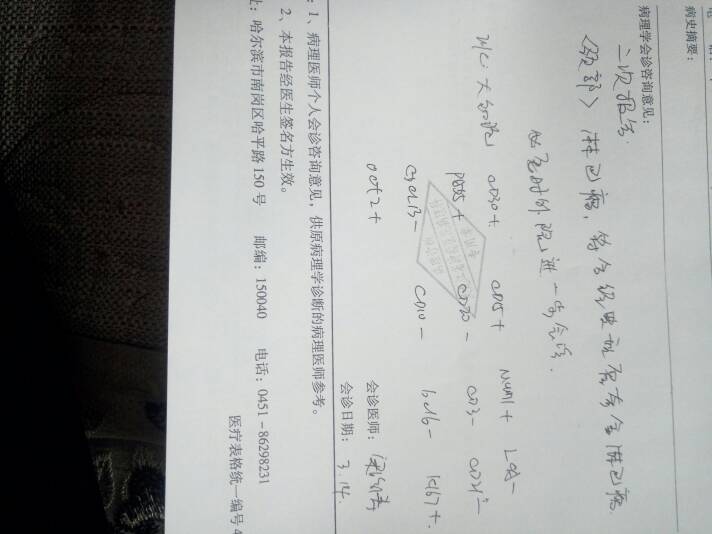 病史摘要：
病理学会诊咨询意见：
二次报告
(颈部) 淋巴瘤，符合经典型霍奇金淋巴瘤
必要时外院进一步会诊.
大细胞 CD30+ CD15+ mum1+ LCA-
PAX5+ CD20- CD3- CD21-
CXCL13- CD10- bcl6- Ki67+
oct2+
会诊医师：
会诊日期： 3.14.
：1、病理医师个人会诊咨询意见，供原病理学诊断的病理医师参考。
2、本报告经医生签名方生效。
址：哈尔滨市南岗区哈平路 150 号 邮编：150040 电话：0451－86298231
医疗表格统一编号 4